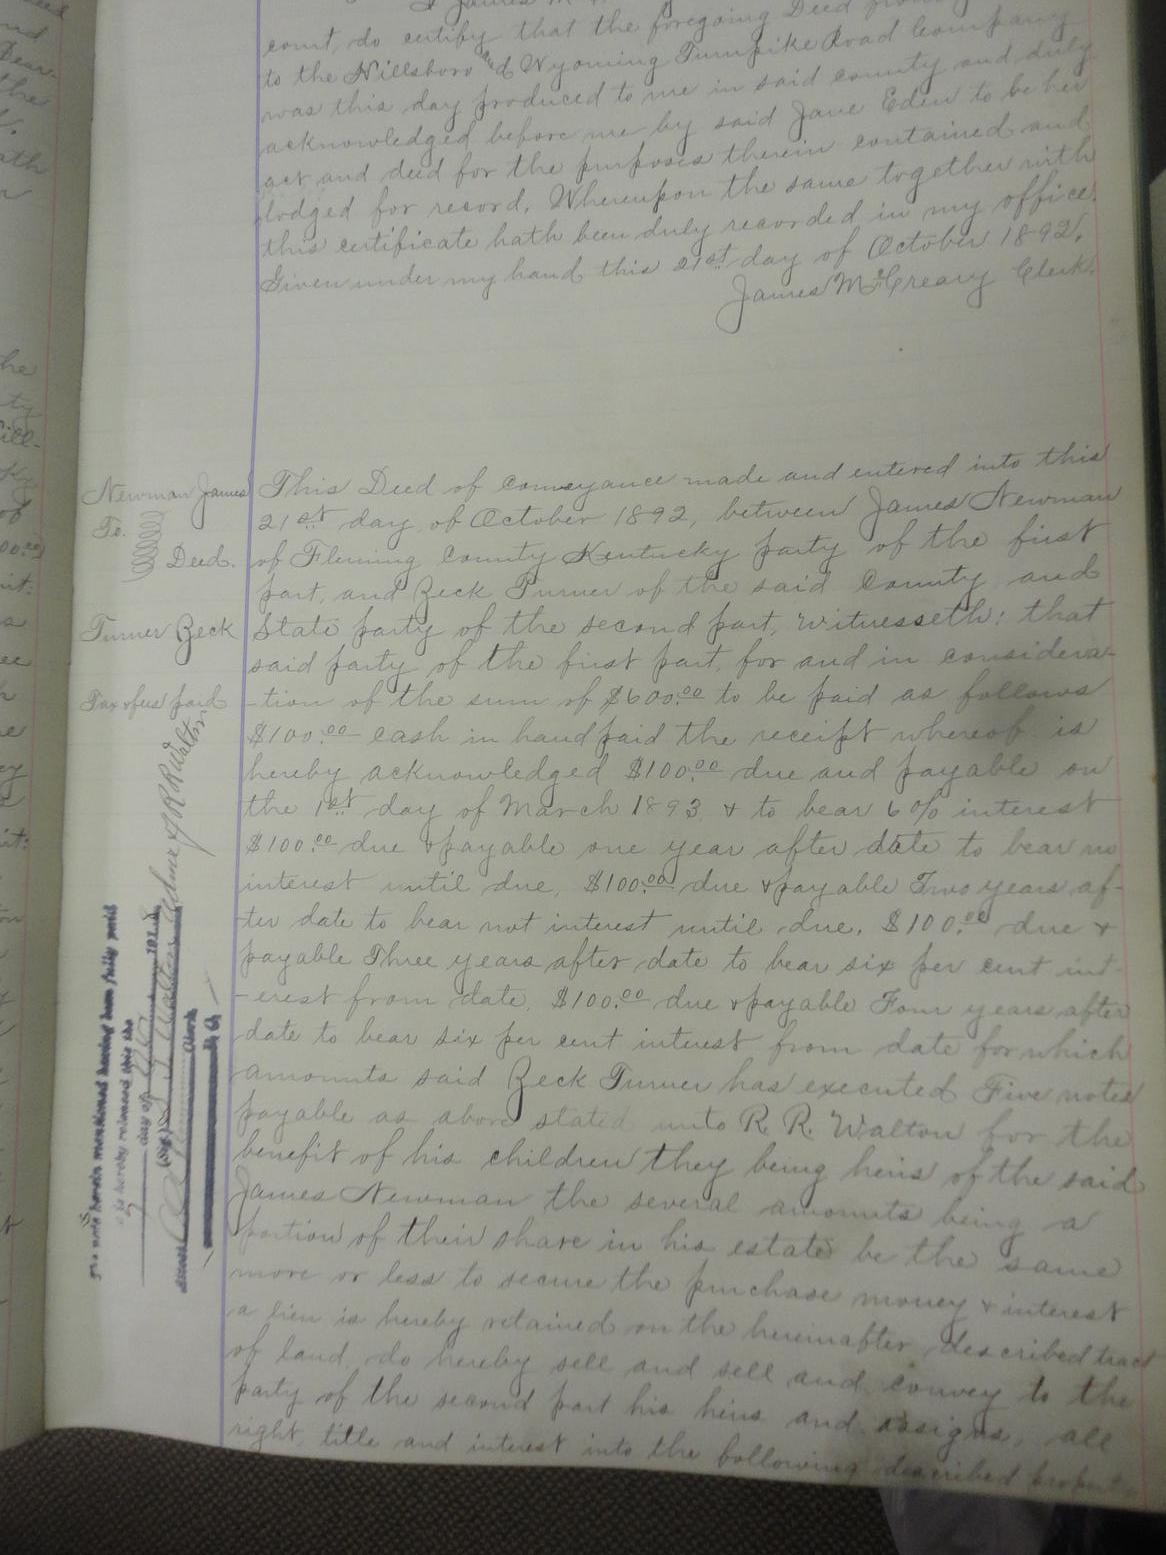 I James M
court, do certify that the foregoing Deed from
to the Hillsboro and Wyoming Turnpike Road Company
was this day produced to me in said county and duly
acknowledged before me by said Jane Eden to be her
act and deed for the purposes therein contained and
lodged for record. Whereupon the same together with
this certificate hath been duly recorded in my office.
Given under my hand this 21st day of October 1892.
James McCreary Clerk.
Newman James
To.
Deed.
Turner Zeck
Tax & fees paid
This Deed of conveyance made and entered into this
21st day of October 1892, between James Newman
of Fleming County Kentucky party of the first
part, and Zeck Turner of the said County and
State party of the second part, witnesseth: that
said party of the first part, for and in considera-
-tion of the sum of $600.00 to be paid as follows
$100.00 cash in hand paid the receipt whereof is
hereby acknowledged $100.00 due and payable on
the 1st day of March 1893 & to bear 6% interest
$100.00 due & payable one year after date to bear no
interest until due, $100.00 due & payable Two years af-
-ter date to bear not interest until due. $100.00 due &
payable Three years after date to bear six per cent int-
-erest from date, $100.00 due & payable Four years after
date to bear six per cent interest from date for which
amounts said Zeck Turner has executed Five notes
payable as above stated unto R. R. Walton for the
benefit of his children they being heirs of the said
James Newman the several amounts being a
portion of their share in his estate be the same
more or less to secure the purchase money & interest
a lien is hereby retained on the hereinafter described tract
of land, do hereby sell and sell and convey to the
party of the second part his heirs and assigns, all
right, title and interest into the following described
herein mentioned having been fully paid
is hereby released this the
day of
Admr of R R Walton